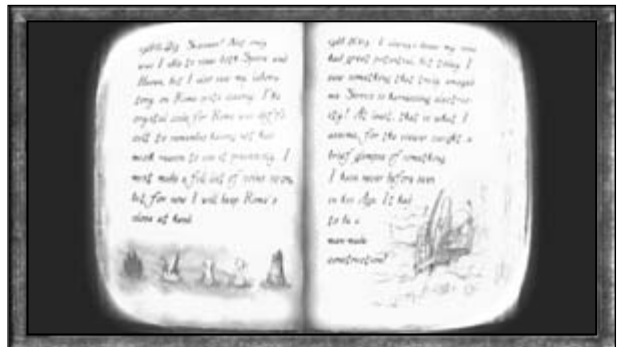 Success! Not only
was I able to view both Spire and
Haven, but I also saw my labora-
tory on Rime quite clearly. The
crystal code for Rime was diffi-
cult to remember having not had
much reason to use it previously. I
must make a full list of codes soon,
but for now I will keep Rime's
close at hand.
I always knew my sons
had great potential, but today I
saw something that truly amazed
me. Sirrus is harnessing electric-
ity! At least, that is what I
assume, for the viewer caught a
brief glimpse of something
I have never before seen
in his Age. It had
to be a
man-made
construction!